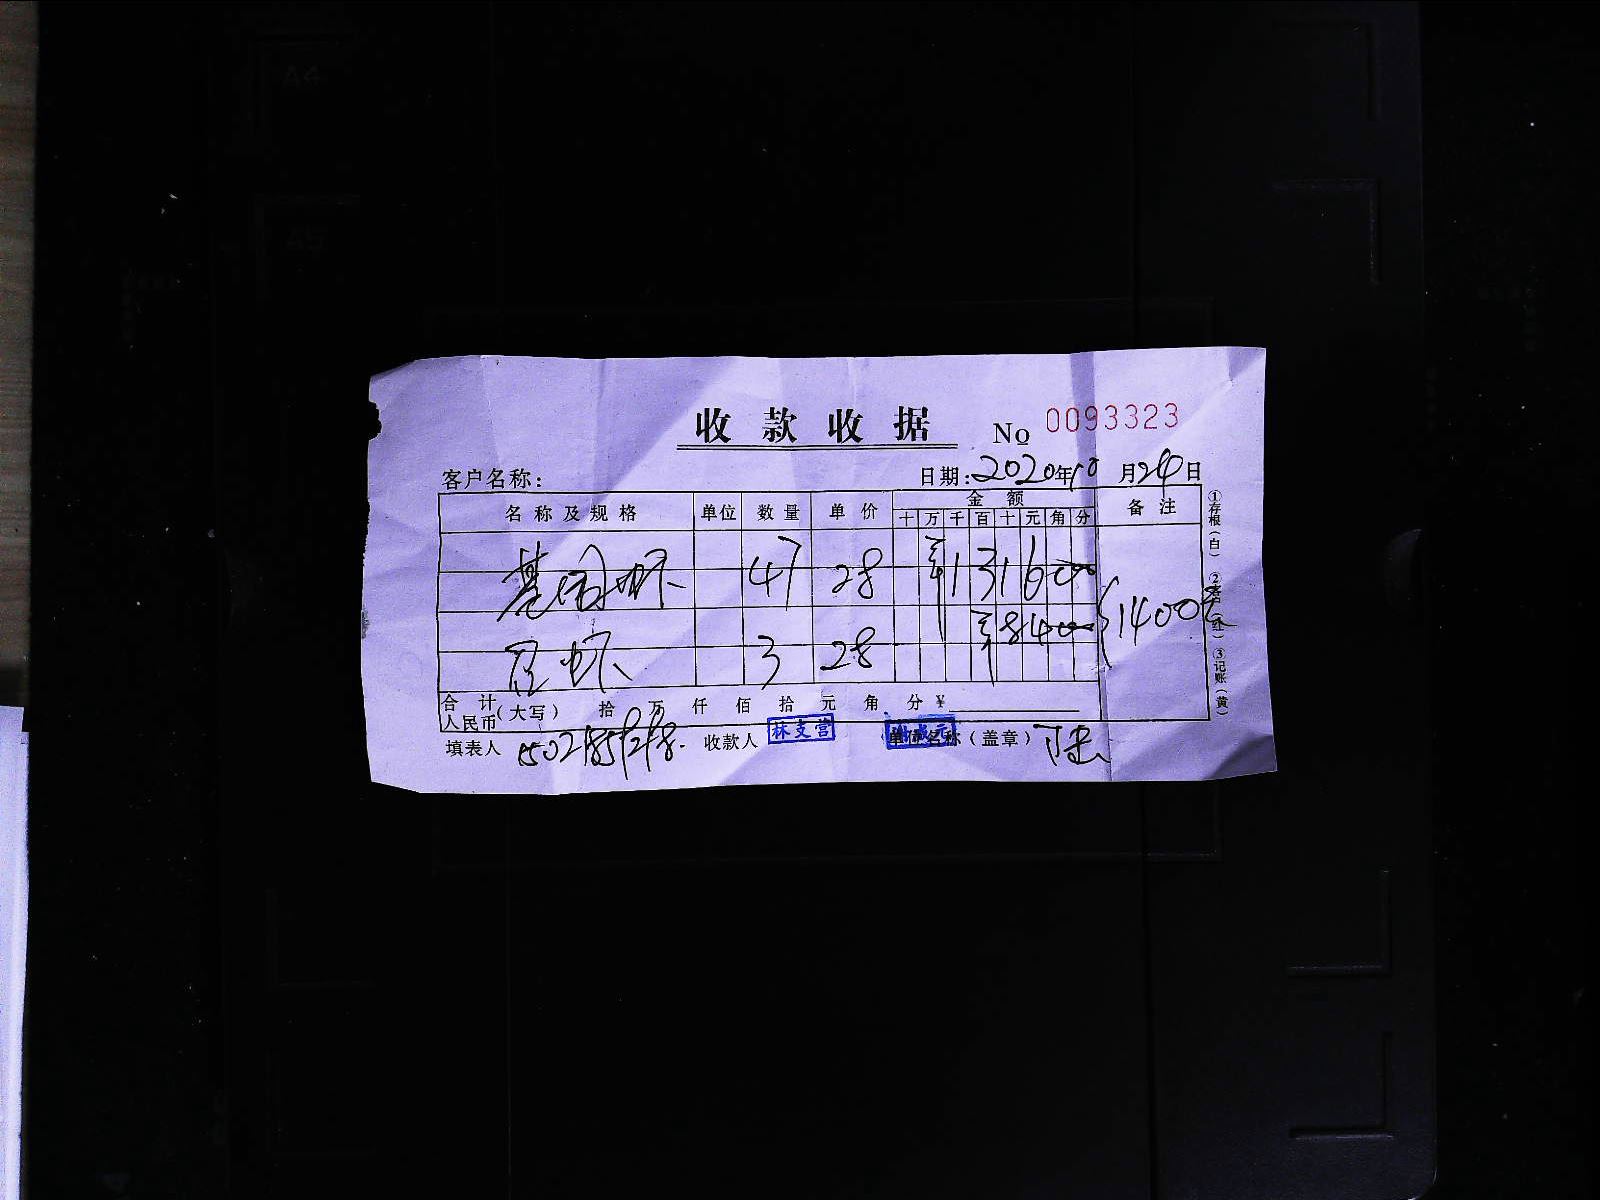 A4
A5
收款收据 No 0093323
客户名称： 日期：2020年10月24日
名称及规格 单位 数量 单价 金额 备注
十 万 千 百 十 元 角 分
基围虾 47 28 ¥131600
虾 3 28 ¥8400 1400元
合计人民币（大写） 拾 万 仟 佰 拾 元 角 分 ¥
填表人 收款人 林支营 单位名称（盖章）
①存根（白） ②客户（红） ③记账（黄）